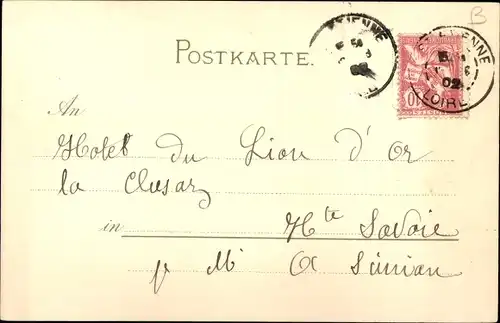 B
POSTKARTE.
ETIENNE
02
ST ETIENNE
02
LOIRE
10
An
Hotel du Lion d'Or
la Clusaz
in Hte Savoie
pr Mr A Simian